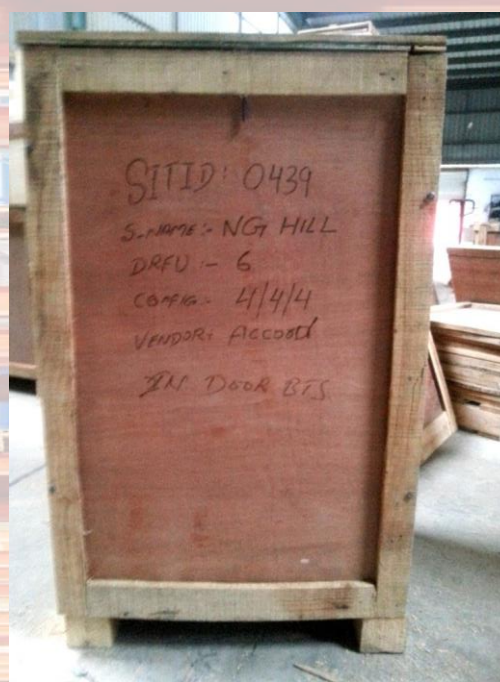 SITID: 0439
S.NAME:- NG HILL
DRFU:- 6
CONFIG:- 4/4/4
VENDOR:
IN DOOR BTS